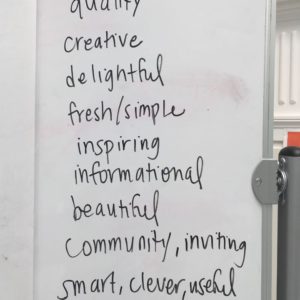 quality
creative
delightful
fresh/simple
inspiring
informational
beautiful
community, inviting
smart, clever, useful